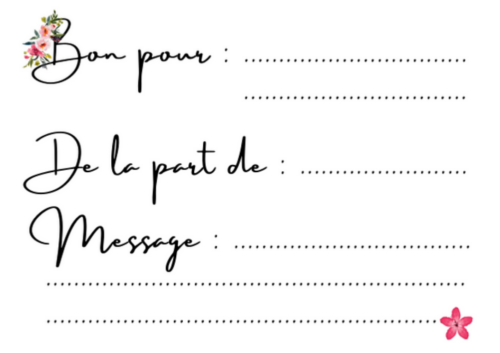 Bon pour : ........................................
........................................
De la part de : ..............................
Message : ..........................................
...........................................................................
......................................................................